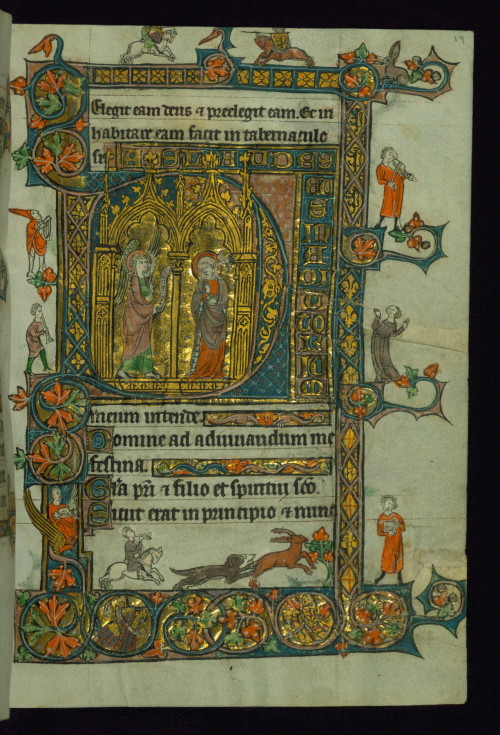 Elegit eam deus ⁊ preelegit eam. Et in
habitare eam facit in tabernaculo
AD LAUDES
D
EUS IN ADIUTORIUM
meum intende
Domine ad adiuuandum me
festina.
Gl'a pr̄i ⁊ filio et spiritui sc̄o.
Sicut erat in principio ⁊ nunc